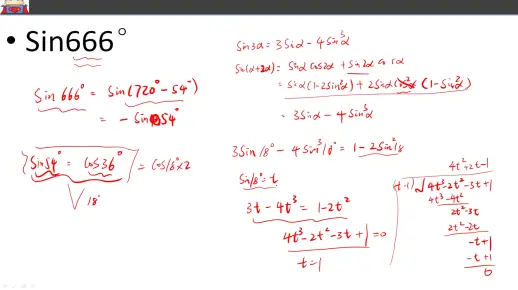 • Sin666°
Sin 666° = Sin(720° - 54°)
= - Sin 54°
Sin54° = Cos36° = Cos18°×2
18°
Sin3α = 3Sinα - 4Sin³α
Sin(α+2α) = Sinα cos2α + Sin2α cosα
= Sinα(1-2Sin²α) + 2Sinα (1-Sin²α)
= 3Sinα - 4Sin³α
3Sin18° - 4Sin³18° = 1-2Sin²18
Sin18° = t
3t - 4t³ = 1-2t²
4t³-2t²-3t+1=0
t=1
4t²+2t-1
(t-1) √4t³-2t²-3t+1
4t³-4t²
2t²-3t
2t²-2t
-t+1
-t+1
0